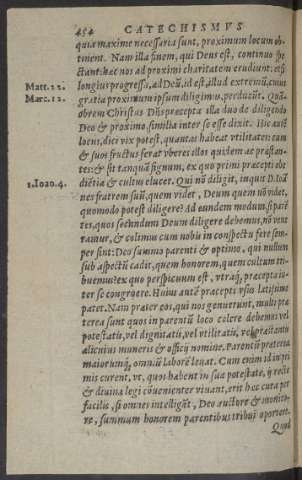 454 CATECHISMVS
quia maxime necessaria sunt, proximum locum ob-
tinent. Nam illa finem, qui Deus est, continuo spe
ctant: hæc nos ad proximi charitatem erudiunt: etsi
Matt. 22. longius progressa, ad Deũ, id est, illud extremũ, cuius
Marc. 12. gratia proximum ipsum diligimus, perducũt. Quã
obrem Christus Dñs præcepta illa duo de diligendo
Deo & proximo, similia inter se esse dixit. Hic aũt
locus, dici vix potest, quantas habeat vtilitates: cum
& suos fructus ferat vberes illos quidem ac præstan-
tes: & sit tanquã signum, ex quo primi præcepti obe
1. Ioan. 4. diẽtia & cultus elucet. Qui nõ diligit, inquit D. Ioã
nes fratrem suũ, quem videt, Deum quem nõ videt,
quomodo potest diligere? Ad eundem modum, si parẽ
tes, quos secundum Deum diligere debemus, nõ vene
ramur, & colimus cum nobis in conspectu fere sem-
per sint: Deo summo parenti & optimo, qui nullum
sub aspectũ cadit, quem honorem, quem cultum tri-
buemus? ex quo perspicuum est, vtraq; præcepta in-
ter se congruere. Huius autẽ præcepti vsus latissime
patet. Nam præter eos, qui nos genuerunt, multi præ
terea sunt quos in parentũ loco colere debemus vel
potestatis, vel dignitatis, vel vtilitatis, vel præstantis
alicuius muneris & officij nomine. Parentũ præterea
maiorumq; omniũ laborẽ leuat. Cum enim id in pri
mis curent, vt, quos habent in sua potestate, ij recte
& diuinæ legi cõuenienter viuant, erit hæc cura per
facilis, si omnes intelligãt, Deo auctore & monito-
re, summum honorem parentibus tribui oportere.
Quod